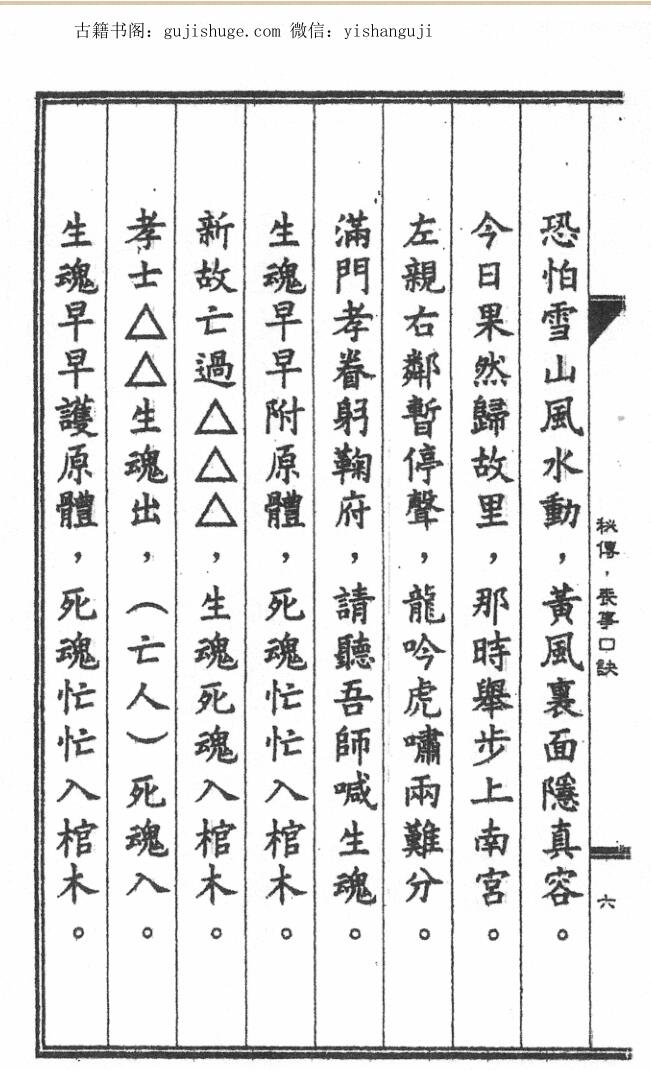 古籍书阁：gujishuge.com 微信：yishanguji
秘傳，喪事口訣
六
恐怕雪山風水動，黃風裏面隱真容。
今日果然歸故里，那時舉步上南宮。
左親右鄰暫停聲，龍吟虎嘯兩難分。
滿門孝眷躬鞠府，請聽吾師喊生魂。
生魂早早附原體，死魂忙忙入棺木。
新故亡過△△△，生魂死魂入棺木。
孝士△△生魂出，（亡人）死魂入。
生魂早早護原體，死魂忙忙入棺木。